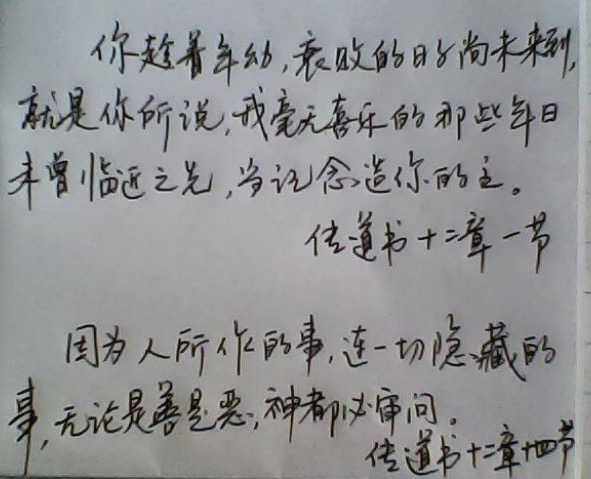 你趁着年幼,衰败的日子尚未来到,
就是你所说,我毫无喜乐的那些年日
未曾临近之先,当记念造你的主。
传道书十二章一节
因为人所作的事,连一切隐藏的
事,无论是善是恶,神都必审问。
传道书十二章十四节